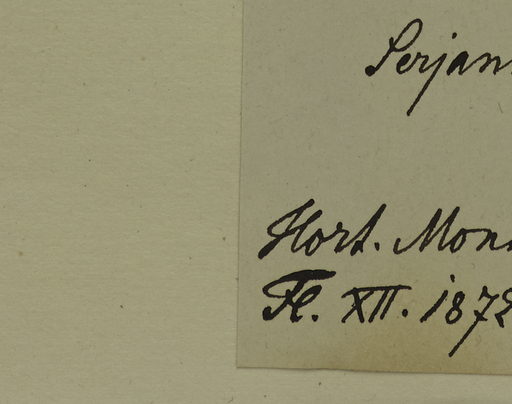 Serjan
Hort. Mon
Fl. XII. 1872